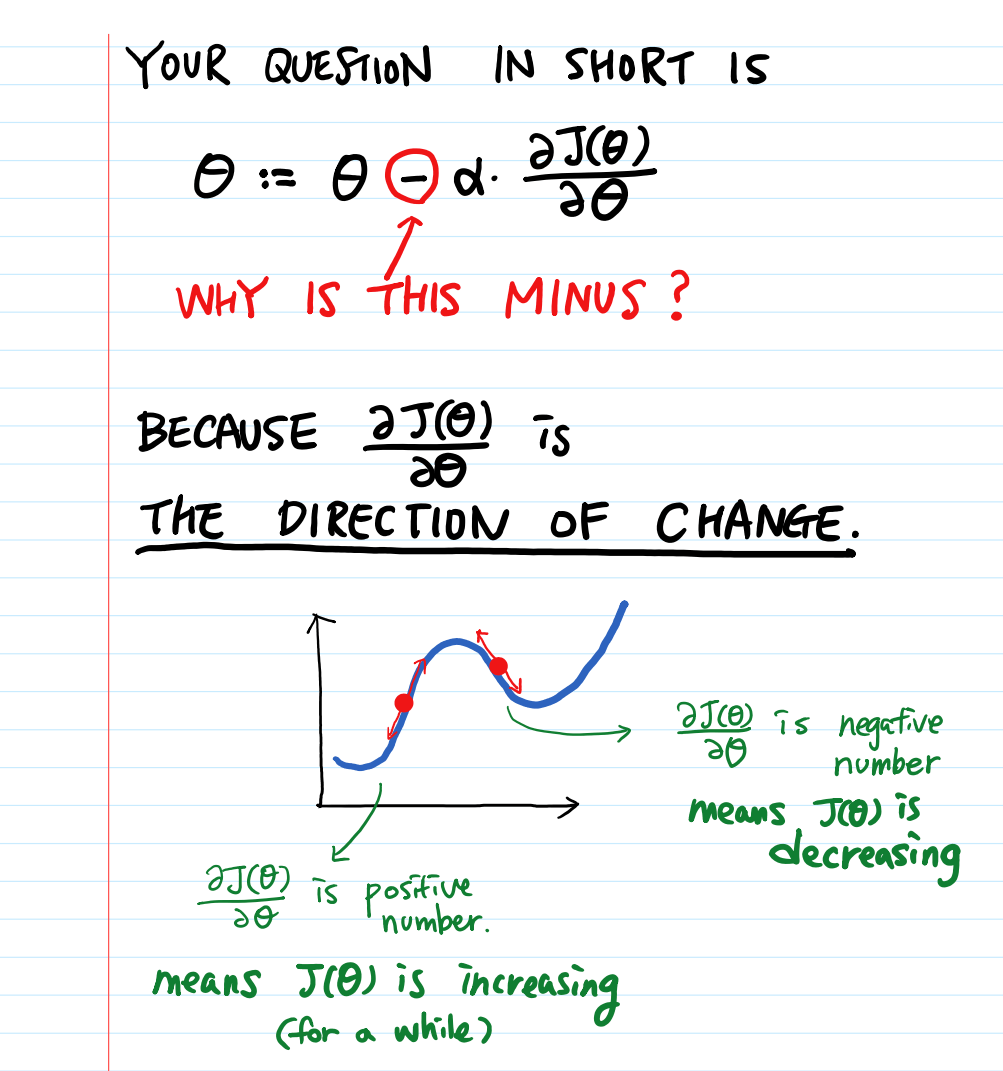 YOUR QUESTION IN SHORT IS
θ := θ − α · ∂J(θ)/∂θ
WHY IS THIS MINUS?
BECAUSE ∂J(θ)/∂θ is
THE DIRECTION OF CHANGE.
∂J(θ)/∂θ is negative
number
means J(θ) is
decreasing
∂J(θ)/∂θ is positive
number.
means J(θ) is increasing
(for a while)